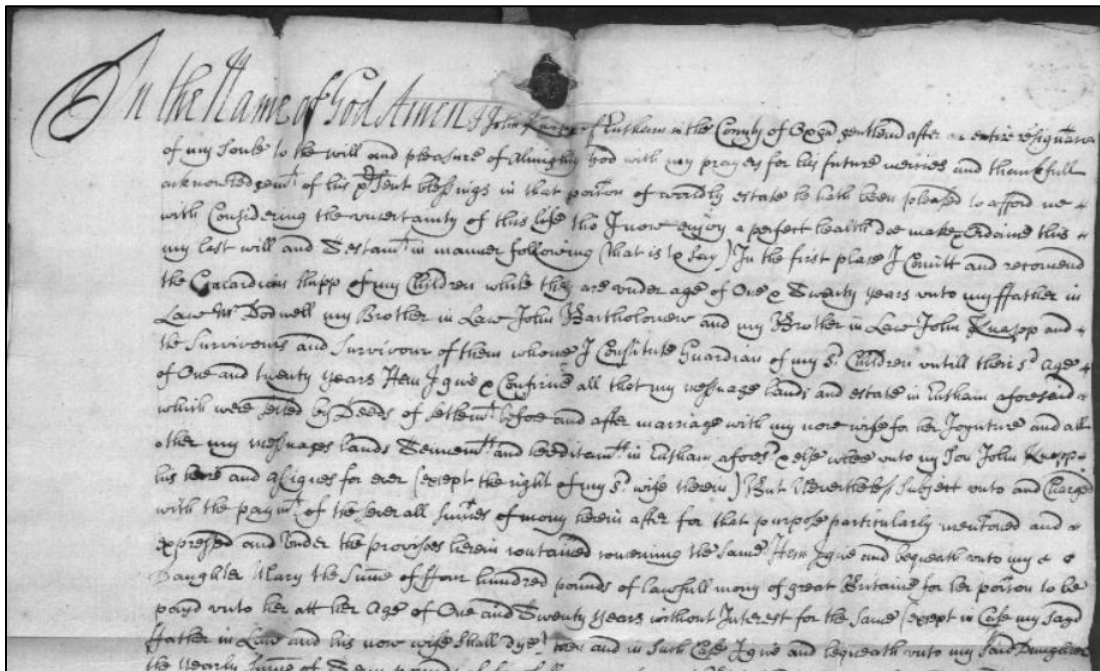 In the Name of God Amen I John Knapp of Chilham in the County of Oxon gentleman after an entire resignation
of my Soule to the will and pleasure of Almighty God with my prayers for his future mercies and thankfull
acknowledgemt of his psent blessings in that portion of worldly estate he hath been pleased to afford me &
with Considering the uncertainty of this life tho I now enjoy a perfect health doe make & Ordaine this &
my last will and Testamt in manner following (that is to say) In the first place I Comitt and recomend
the Guardianshipp of my Children while they are under age of One & Twenty years unto my ffather in
Law Mr Dodwell my Brother in Law John Bartholomew and my Brother in Law John Knapp and &
the Survivours and Survivour of them whome I Constitute Guardian of my sd Children untill their sd age &
of One and twenty years Item I give & Confirme all that my messuage lands and estate in aforesaid &
which were setled by Deeds of setlemt before and after marriage with my now wife for her Joynture and all
other my messuages lands Tenemts and hereditamts in afores & else where unto my Son John Knapp &
his heirs and assignes for ever (except the right of my sd wife therein) But Neverthelesse Subject unto and Charged
with the paymt of the severall summes of mony herein after for that purpose particularly mentoned and &
expressed and under the provisoes herein contained concerning the same Item I give and bequeath unto my & &
Daughter Mary the Summe of ffour hundred pounds of lawfull mony of great Britaine for her portion to be
payd unto her att her Age of One and Twenty years without Interest for the same (except in Case my sayd
ffather in Law and his now wife shall dye) then and in such Case I give and bequeath unto my said Daughter
the yearly summe of pounds of